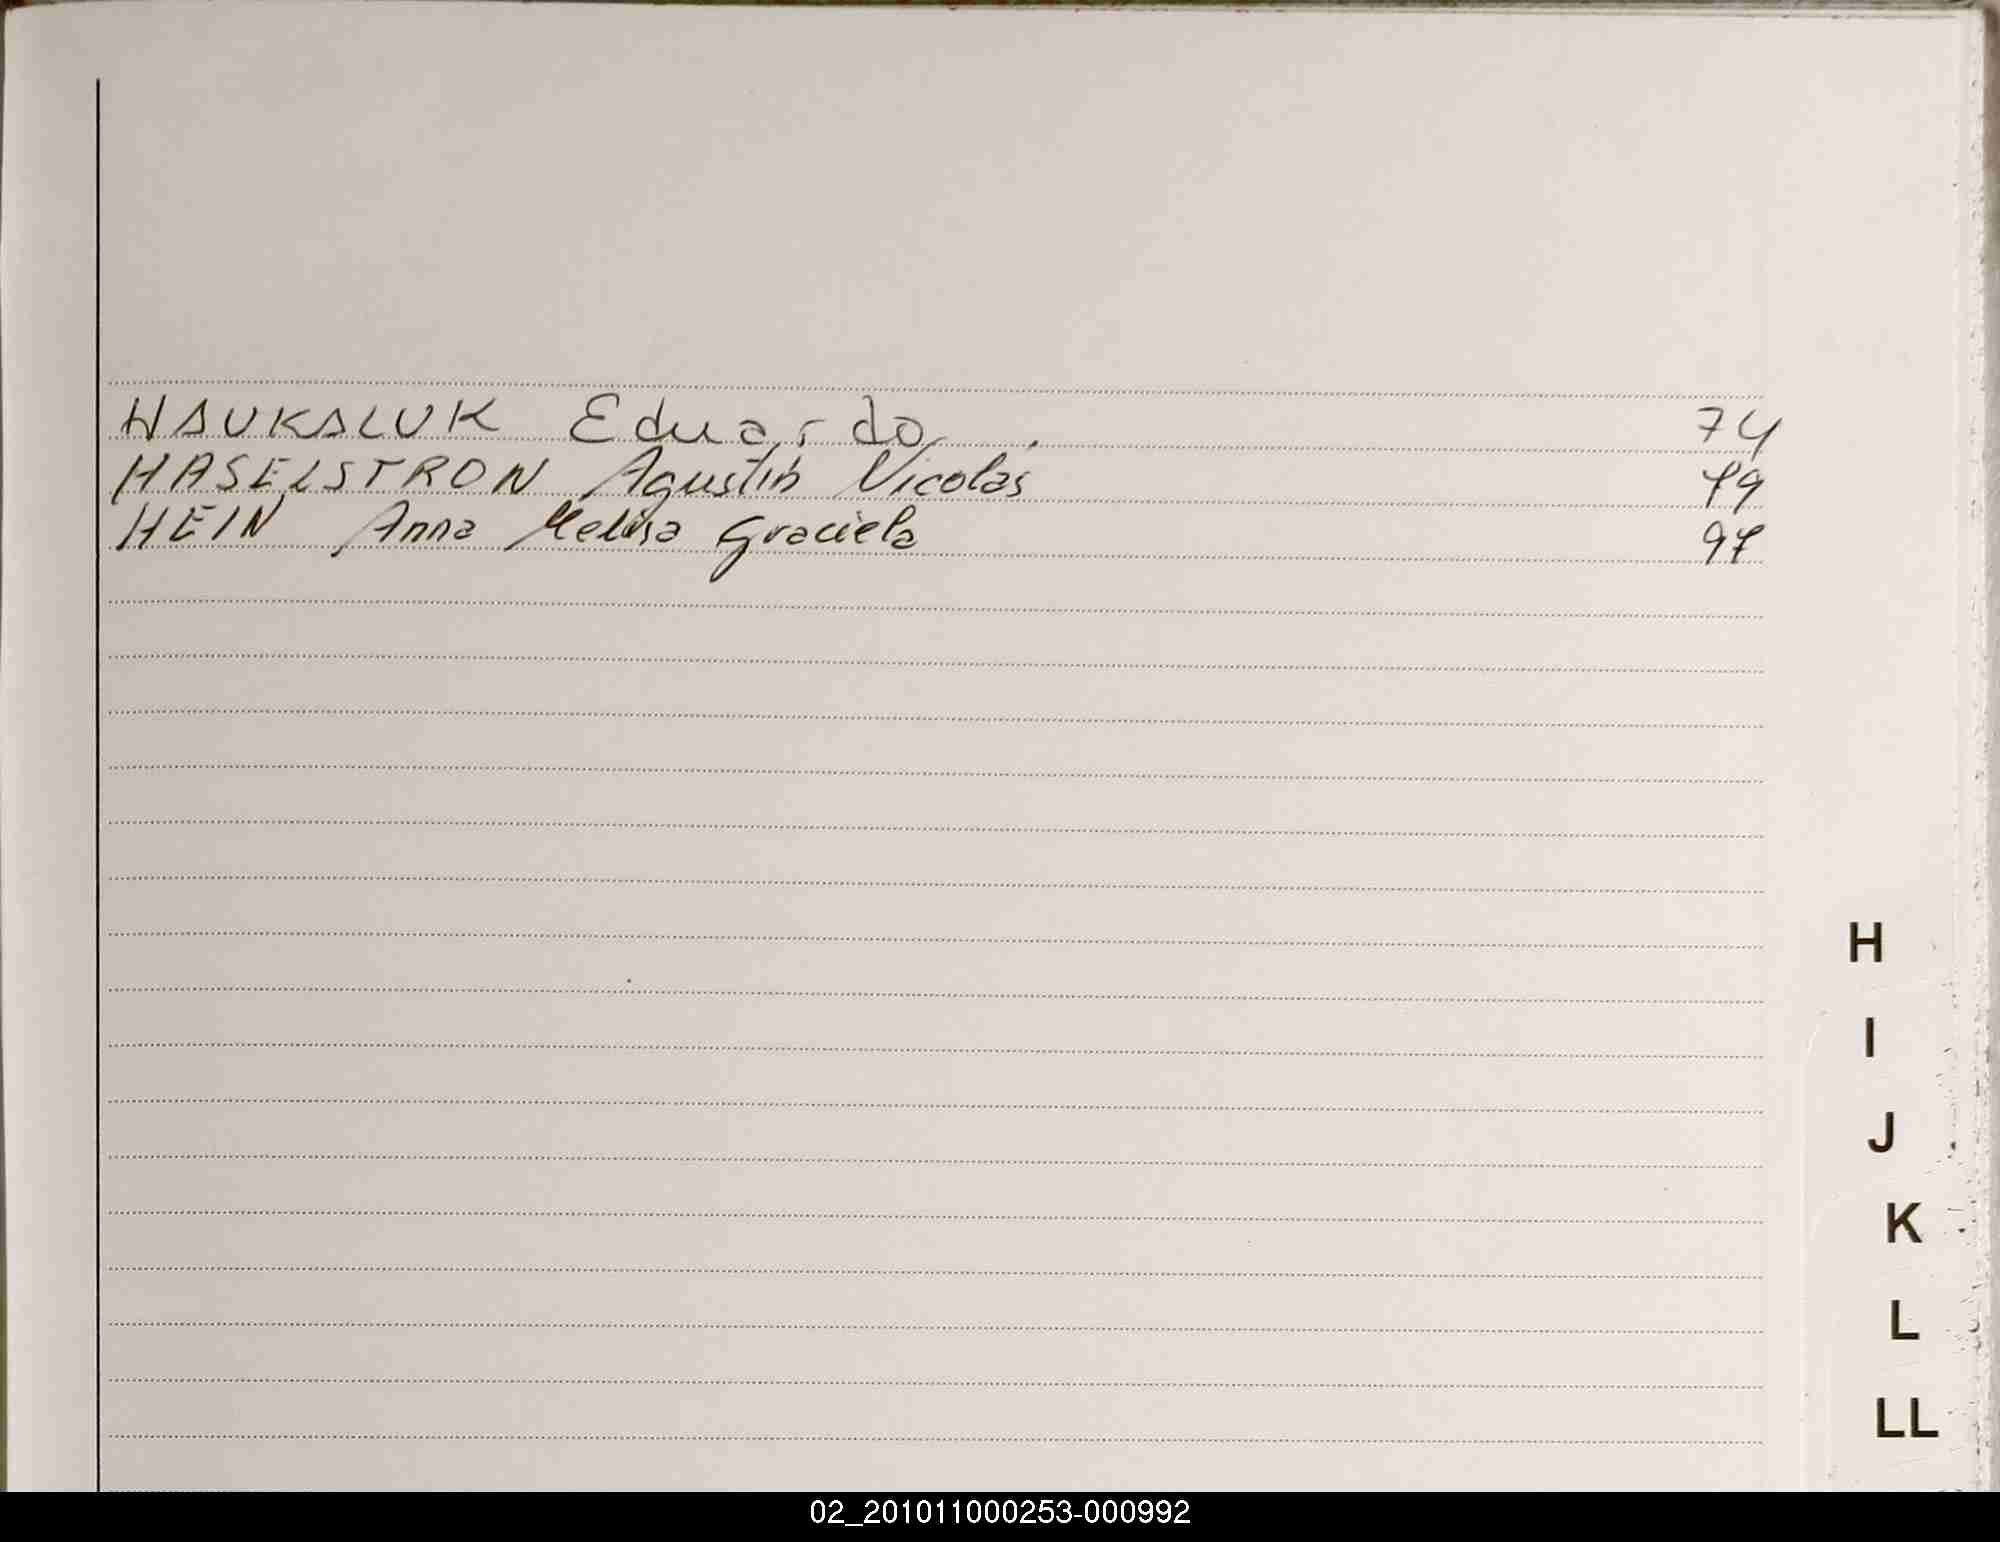 HAUKALUK Eduardo 74
HASELSTRON Agustin Nicolas 79
HEIN Anna Melisa Graciela 97
H
I
J
K
L
LL
02_201011000253-000992